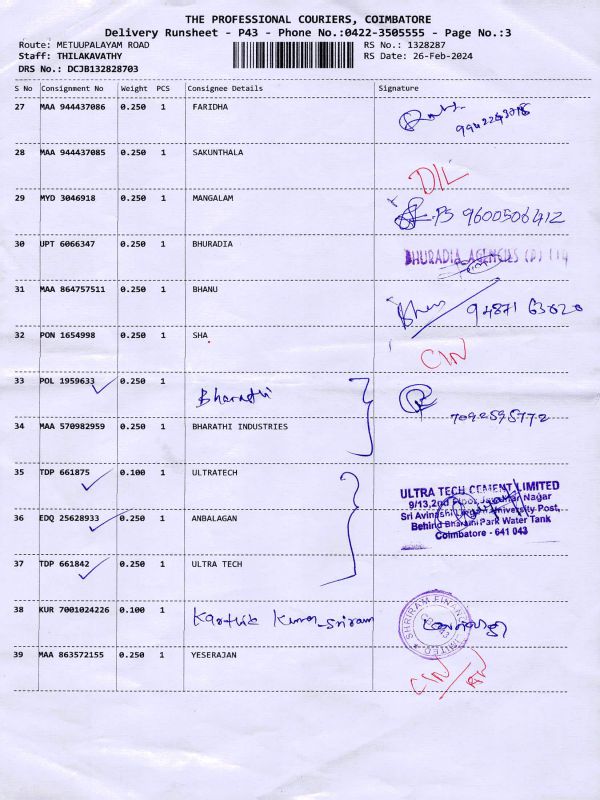 THE PROFESSIONAL COURIERS, COIMBATORE
Delivery Runsheet - P43 - Phone No.:0422-3505555 - Page No.:3
Route: METUUPALAYAM ROAD RS No.: 1328287
Staff: THILAKAVATHY RS Date: 26-Feb-2024
DRS No.: DCJB132828703
S No Consignment No Weight PCS Consignee Details Signature
27 MAA 944437086 0.250 1 FARIDHA
28 MAA 944437085 0.250 1 SAKUNTHALA
DIL
29 MYD 3046918 0.250 1 MANGALAM
9600506412
30 UPT 6066347 0.250 1 BHURADIA
BHURADIA AGENCIES (P)
31 MAA 864757511 0.250 1 BHANU
Bhanu
32 PON 1654998 0.250 1 SHA
CIN
33 POL 1959633 0.250 1 Bharathi
7092595772
34 MAA 570982959 0.250 1 BHARATHI INDUSTRIES
35 TDP 661875 0.100 1 ULTRATECH
ULTRA TECH CEMENT LIMITED
9/13, 2nd Floor, Nagar
Sri University Post,
36 EDQ 25628933 0.250 1 ANBALAGAN
Behind Bharani Park Water Tank
Coimbatore - 641 043
37 TDP 661842 0.250 1 ULTRA TECH
38 KUR 7001024226 0.100 1 Karthik Kumar_Sriram
SHRIRAM FINANCE LIMITED
39 MAA 863572155 0.250 1 YESERAJAN
CIN